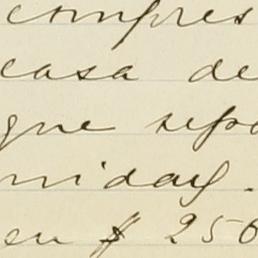 compres
casa de
que repo
nidad.
en $ 250